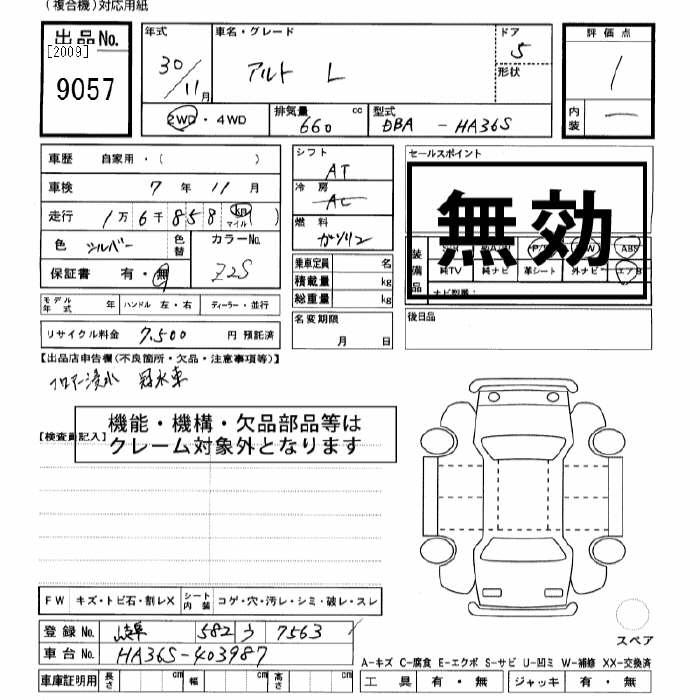 (複合機)対応用紙
出品No.
[2009]
9057
年式
30/11月
車名・グレード
アルト L
ドア
5
形状
評価点
1
内装
2WD・4WD
排気量 cc
660
型式
DBA-HA36S
車歴 自家用・( )
車検 7年 11月
走行 1万 6千 858 km マイル )
色 シルバー 色替 カラーNo.
Z2S
保証書 有・無
シフト
AT
冷房
AC
燃料
ガソリン
乗車定員 名
積載量 kg
総重量 kg
セールスポイント
無効
装備品
純TV 純ナビ 革シート 外ナビ エアB
モデル年式 年 ハンドル 左・右 ディーラー・並行
名変期限
月 日
後日品
リサイクル料金 7,500 円 預託済
【出品店申告欄(不良箇所・欠品・注意事項等)】
フロアー浸水 冠水車
【検査員記入】
機能・機構・欠品部品等は
クレーム対象外となります
FW キズ・トビ石・割レX シート内装 コゲ・穴・汚レ・シミ・破レ・スレ
登録No. 岐阜 582 ウ 7563
車台No. HA36S-403987
車庫証明用 長さ cm 幅 cm 高さ cm
スペア
A-キズ C-腐食 E-エクボ S-サビ U-凹ミ W-補修 XX-交換済
工具 有・無 ジャッキ 有・無